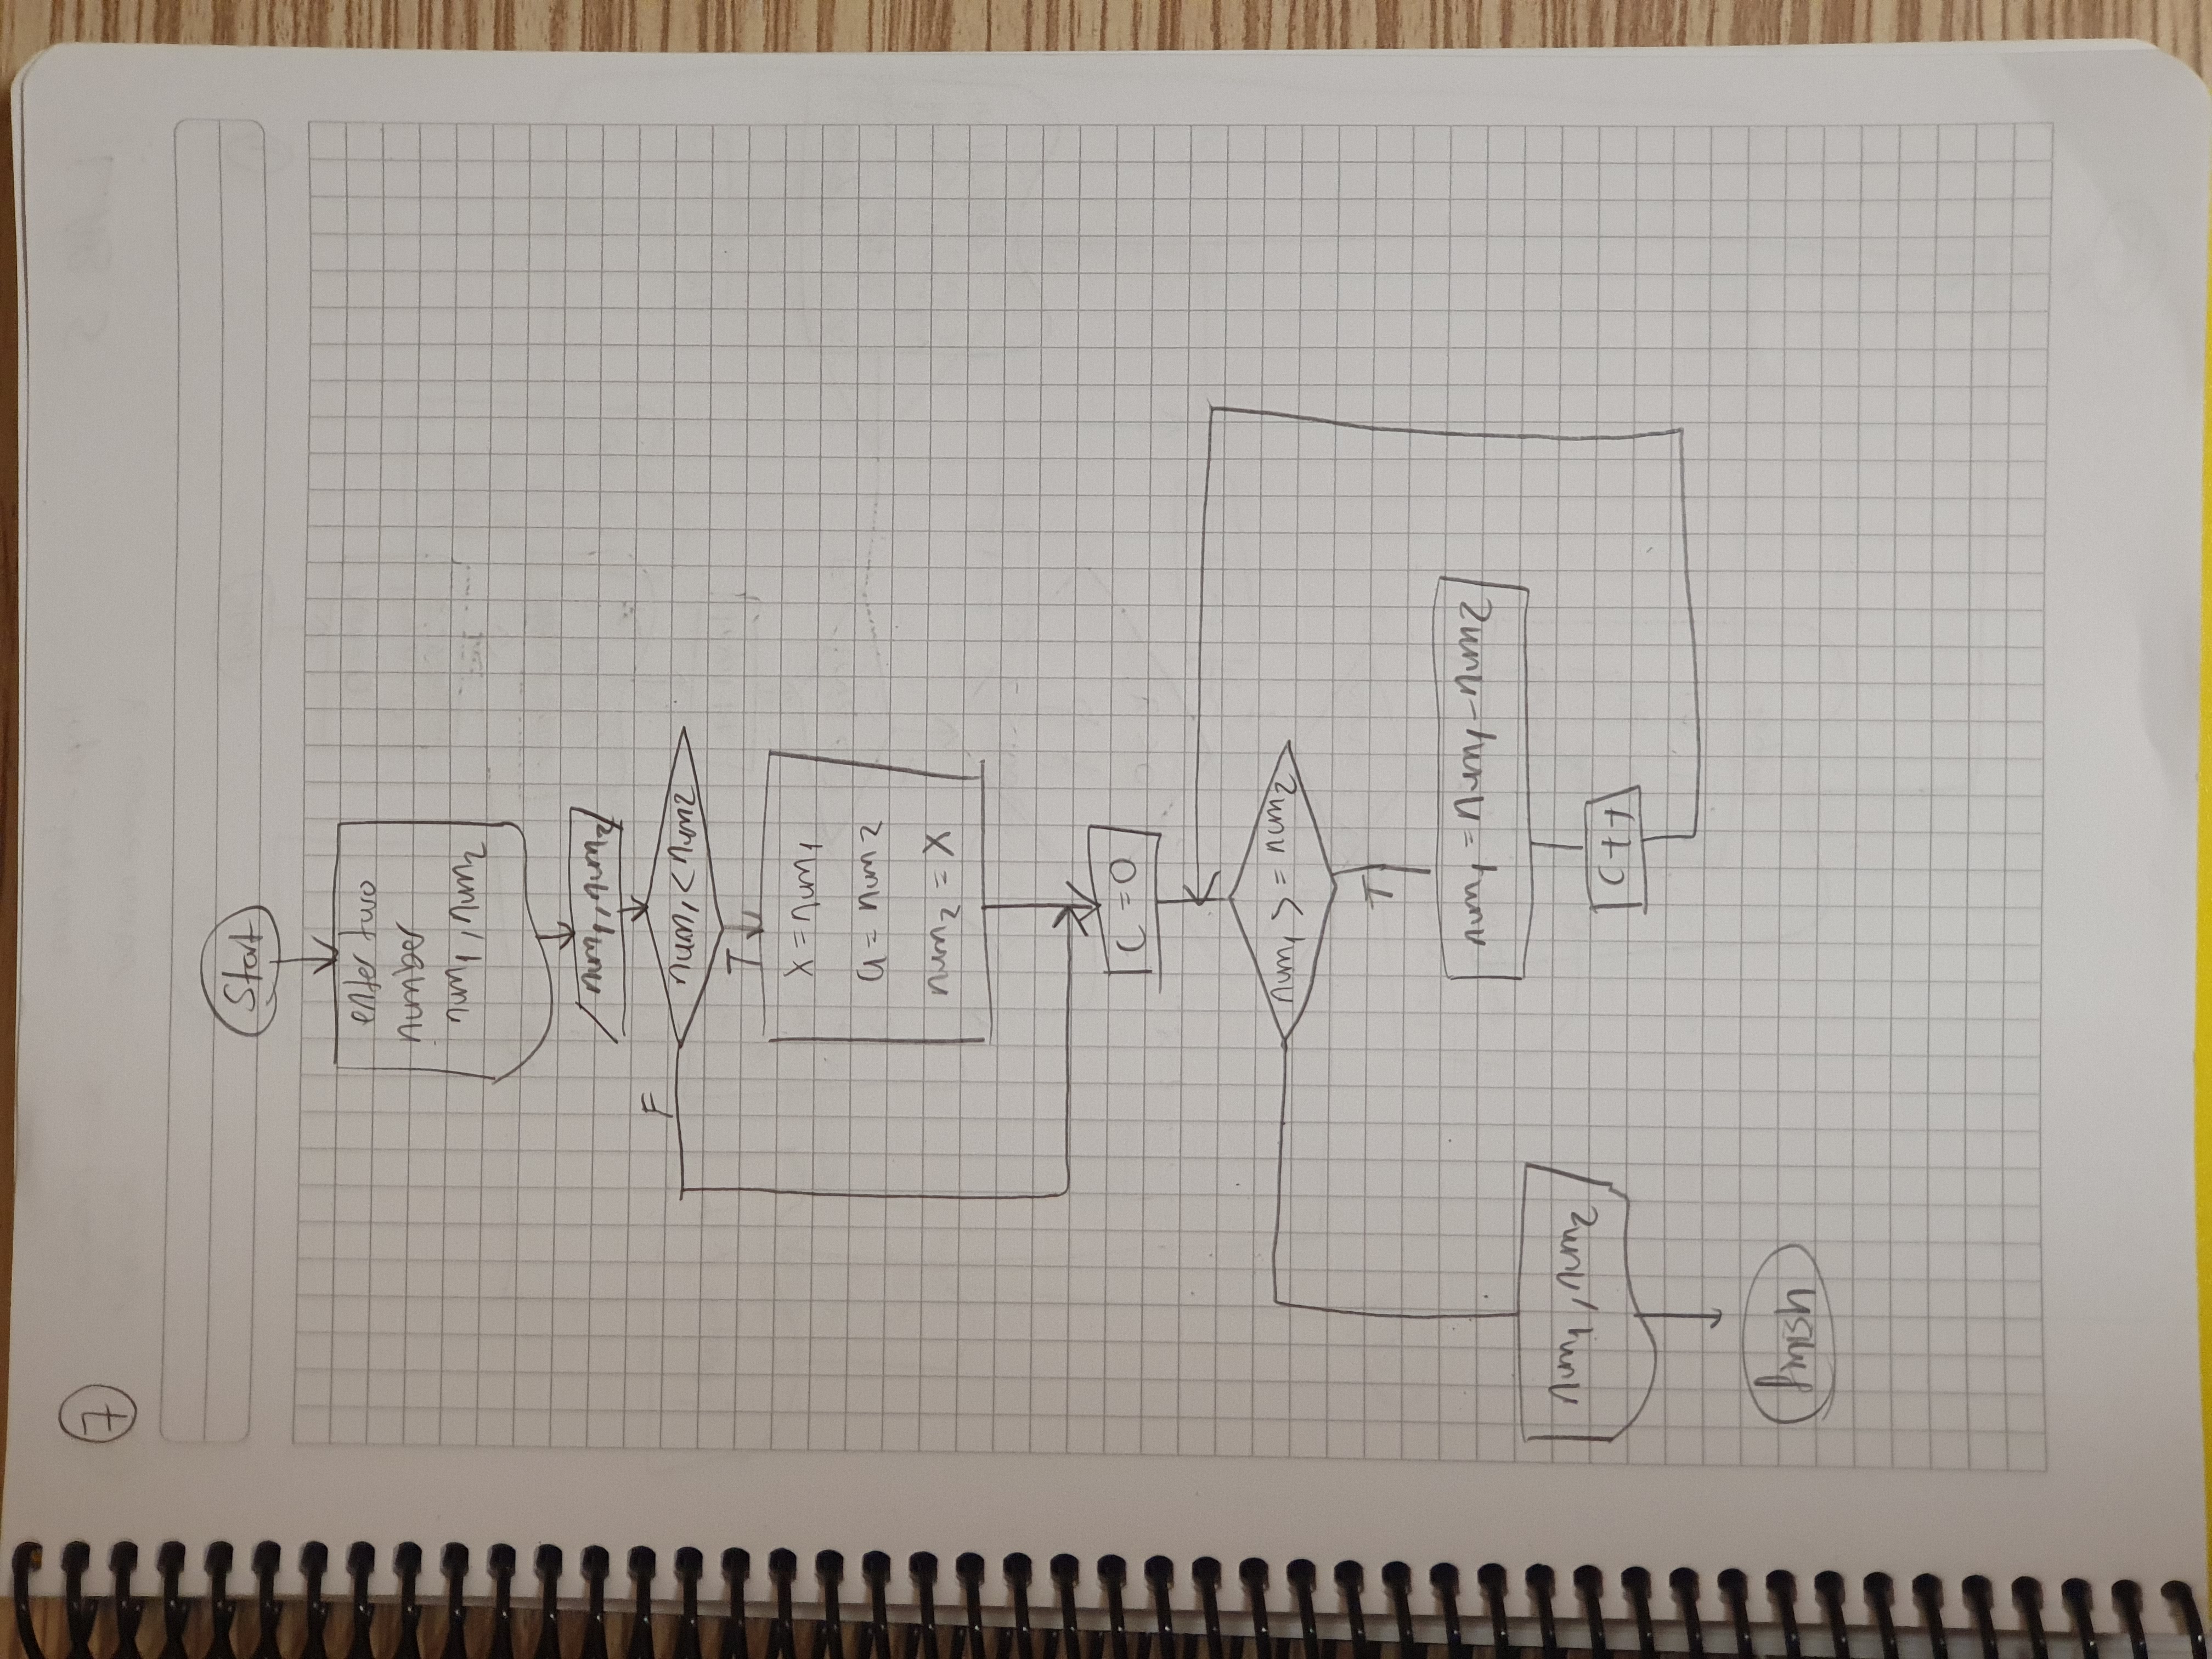 7
Start
enter two
number
num1, num2
num1, num2
num1 < num2
F
T
x = num1
a = num2
num2 = x
C = 0
num1 > = num2
T
num1 = num1 - num2
C++
num1, num2
finish